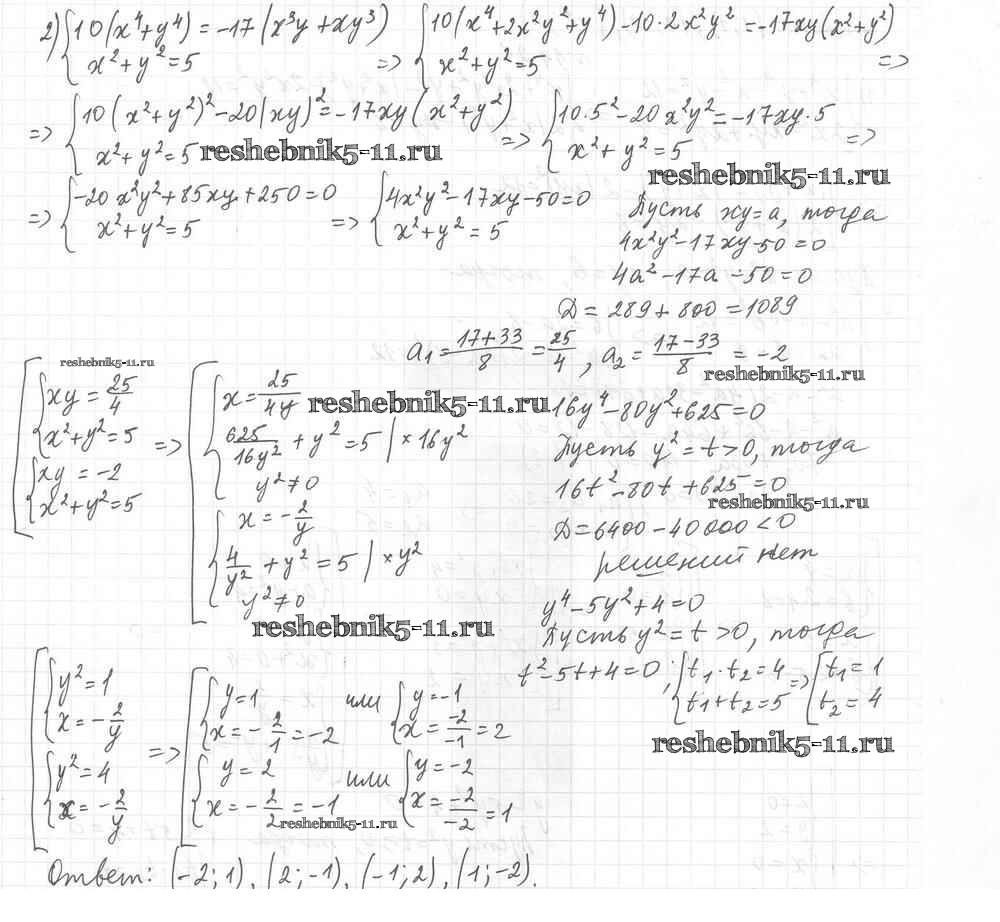 2) { 10(x⁴+y⁴) = -17(x³y + xy³) => { 10(x⁴+2x²y²+y⁴) - 10·2x²y² = -17xy(x²+y²) =>
x²+y²=5 x²+y²=5
=> { 10(x²+y²)² - 20(xy)² = -17xy(x²+y²) => { 10·5² - 20x²y² = -17xy·5 =>
x²+y²=5 reshebnik5-11.ru x²+y²=5
reshebnik5-11.ru
=> { -20x²y²+85xy+250=0 => { 4x²y²-17xy-50=0
x²+y²=5 x²+y²=5
Пусть xy=a, тогда
4x²y²-17xy-50=0
4a²-17a-50=0
Д = 289+800=1089
a₁ = (17+33)/8 = 25/4, a₂ = (17-33)/8 = -2
reshebnik5-11.ru
reshebnik5-11.ru
[ { xy = 25/4
x²+y²=5
{ xy = -2
x²+y²=5
=> [ { x = 25/4y
reshebnik5-11.ru
625/16y² + y² = 5 | ×16y²
y²≠0
{ x = -2/y
4/y² + y² = 5 | ×y²
y²≠0
reshebnik5-11.ru
16y⁴-80y²+625=0
Пусть y²=t>0, тогда
16t²-80t+625=0
reshebnik5-11.ru
Д=6400-40000<0
решений нет
y⁴-5y²+4=0
Пусть y²=t>0, тогда
t²-5t+4=0; { t₁·t₂=4 => [ t₁=1
t₁+t₂=5 t₂=4
reshebnik5-11.ru
[ { y²=1
x=-2/y
{ y²=4
x=-2/y
=> [ { y=1 или { y=-1
x=-2/1=-2 x=-2/-1=2
{ y=2 или { y=-2
x=-2/2=-1 x=-2/-2=1
reshebnik5-11.ru
Ответ: (-2;1), (2;-1), (-1;2), (1;-2).